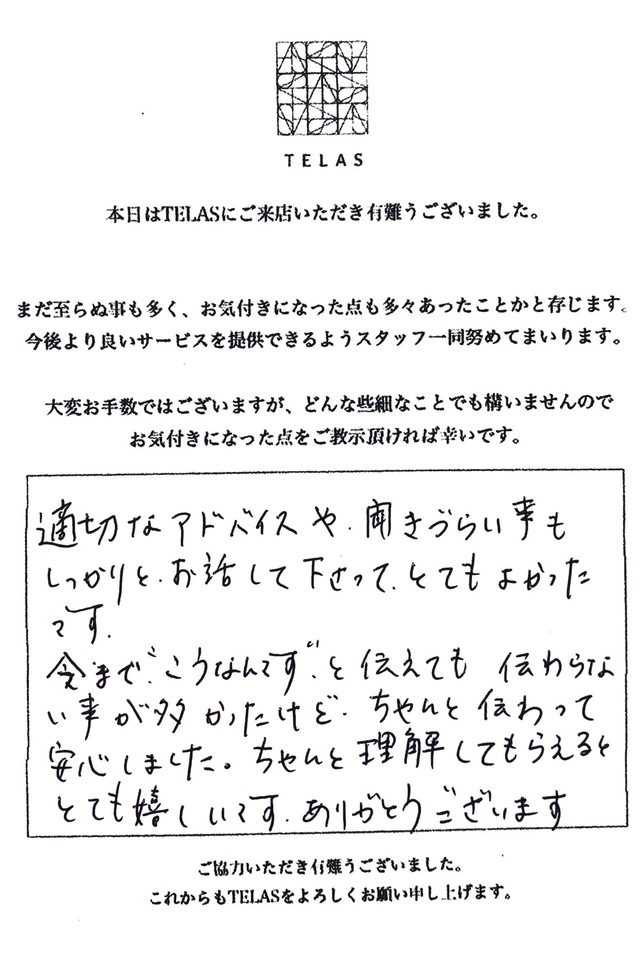 TELAS
本日はTELASにご来店いただき有難うございました。
まだ至らぬ事も多く、お気付きになった点も多々あったことかと存じます。
今後より良いサービスを提供できるようスタッフ一同努めてまいります。
大変お手数ではございますが、どんな些細なことでも構いませんので
お気付きになった点をご教示頂ければ幸いです。
適切なアドバイスや、聞きづらい事も
しっかりと、お話して下さって、とてもよかった
です。
今まで“こうなんです”と伝えても 伝わらな
い事が多かったけど、ちゃんと伝わって
安心しました。ちゃんと理解してもらえると
とても嬉しいです。ありがとうございます
ご協力いただき有難うございました。
これからもTELASをよろしくお願い申し上げます。